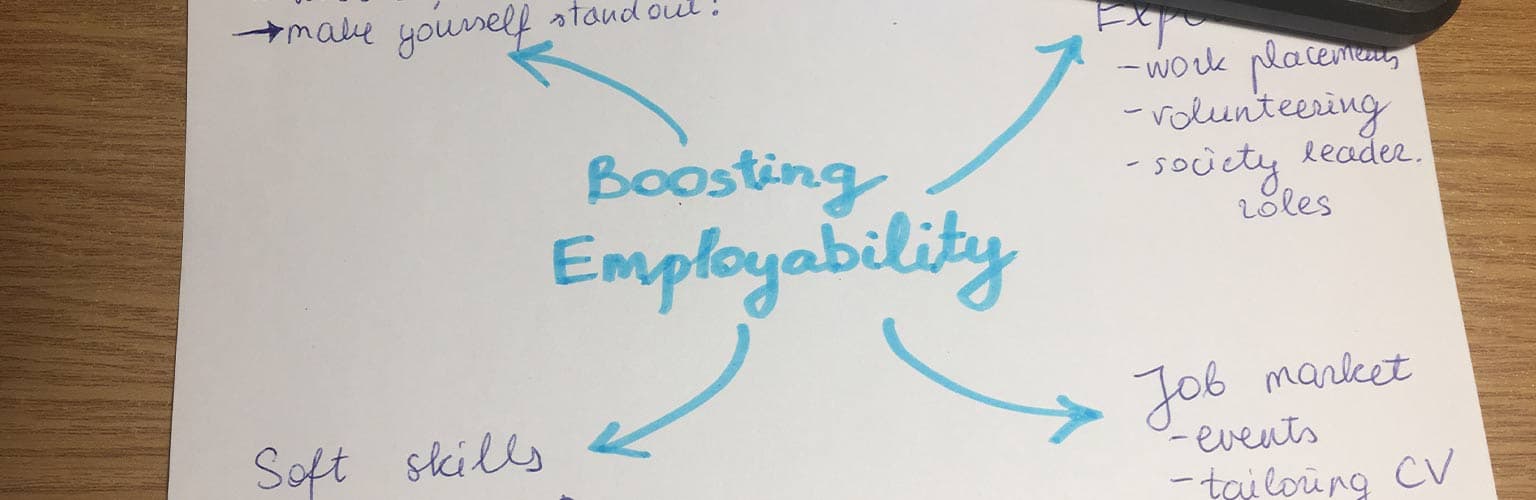 →make yourself standout!
Boosting
Employability
-work placements
-volunteering
-society leader.
roles
Soft skills
Job market
-events
-tailoring CV